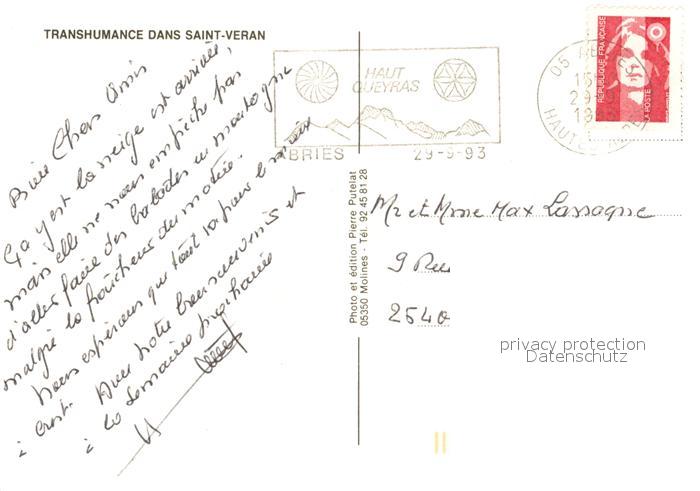 TRANSHUMANCE DANS SAINT-VERAN
Bien Chers Amis
Ça y est la neige est arrivée,
mais elle ne nous empêche pas
d'aller faire des balades en montagne
malgré la fraîcheur du matin.
Nous espérons que tout va pour le mieux
à Crest. Avec notre bon souvenir et
à la semaine prochaine
HAUT
QUEYRAS
ABRIES 29-9-93
05 A
15
29
19
HAUTES ALPES
REPUBLIQUE FRANÇAISE
LA POSTE
Photo et édition Pierre Putelat
05350 Molines - Tél. 92 45 81 28
Mr et Mme Max Lassagne
9 Rue
2540
privacy protection
Datenschutz